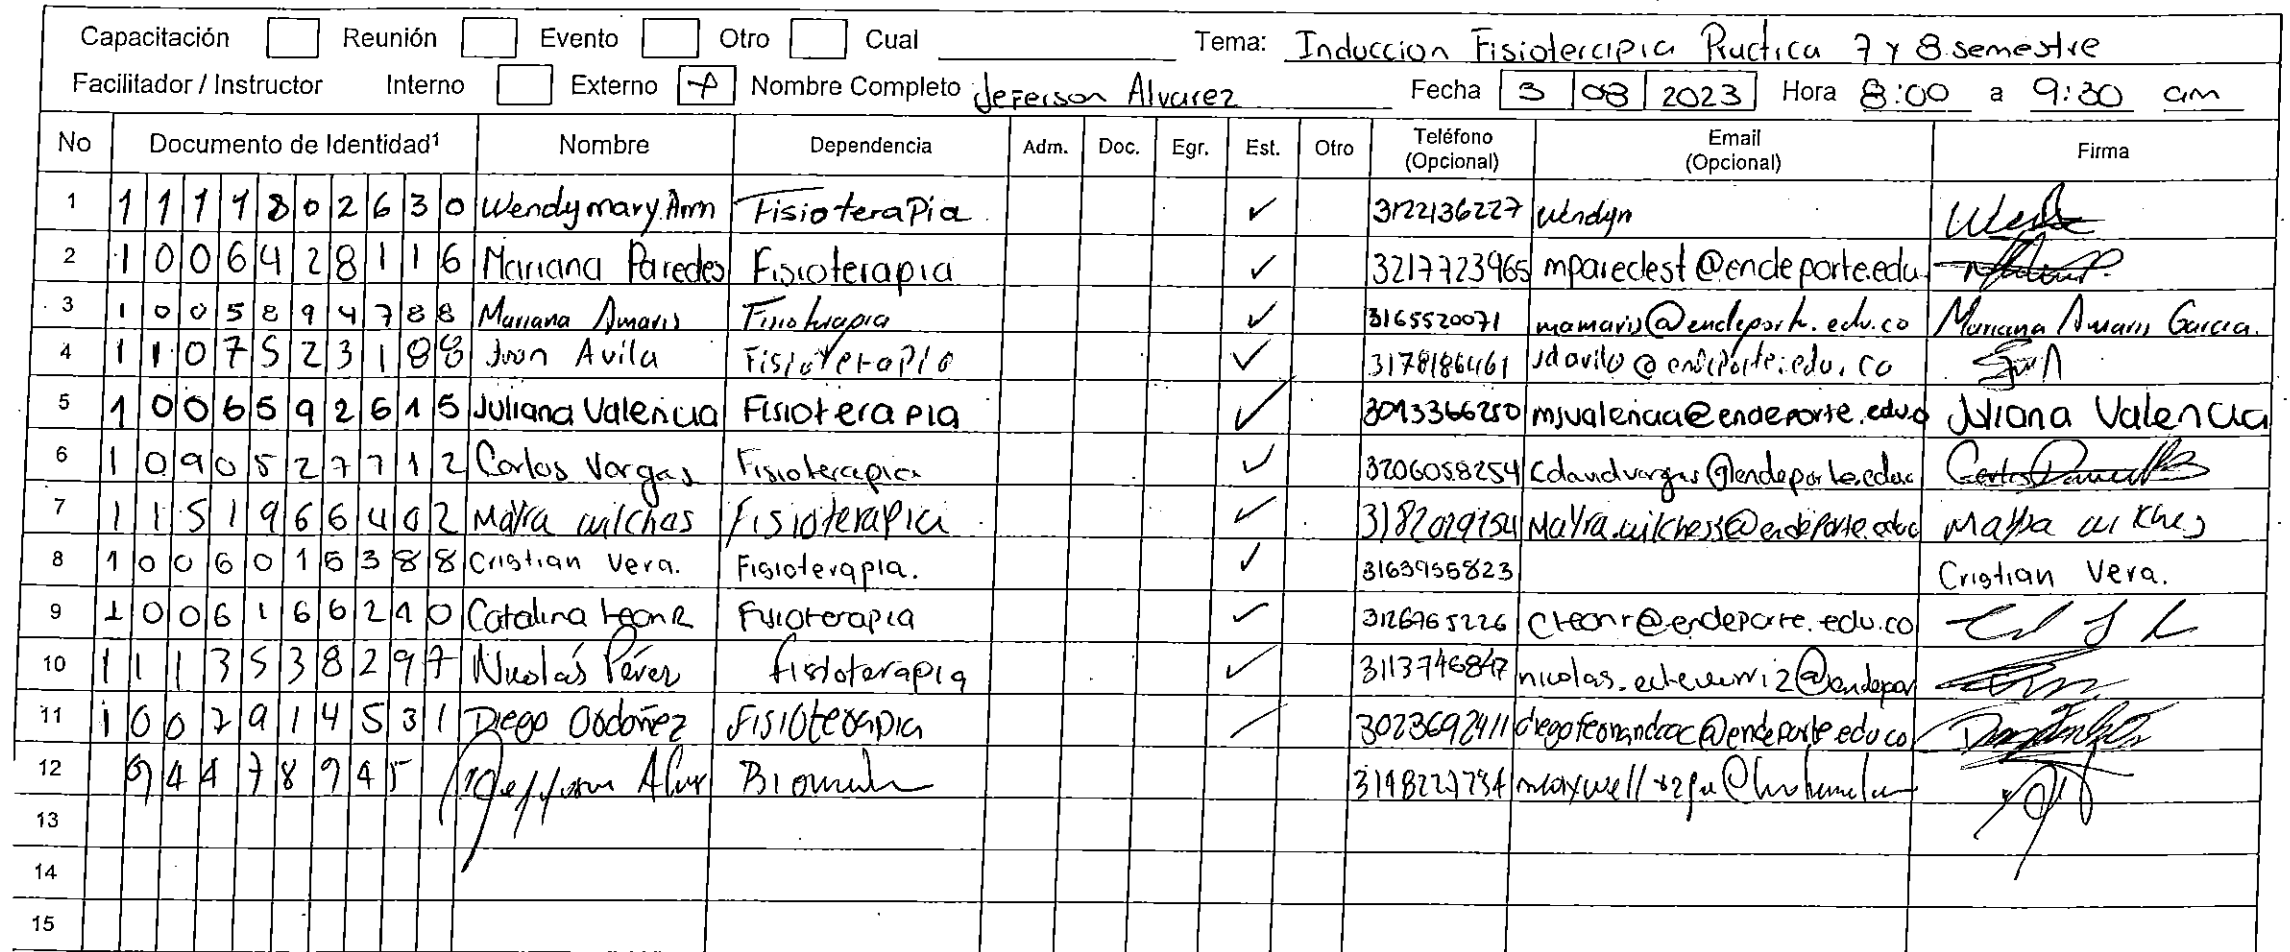 Capacitación Reunión Evento Otro Cual Tema: Induccion Fisioterapia Practica 7 y 8 semestre
Facilitador / Instructor Interno Externo X Nombre Completo Jeferson Alvarez Fecha 3 08 2023 Hora 8:00 a 9:30 am
No Documento de Identidad¹ Nombre Dependencia Adm. Doc. Egr. Est. Otro Teléfono (Opcional) Email (Opcional) Firma
1 1111802630 Wendy mary Ann Fisioterapia ✓ 3122136227 wendyn
2 1006428116 Mariana Paredes Fisioterapia ✓ 3217723965 mparedest@endeporte.edu.
3 1005894788 Mariana Amaris Fisioterapia ✓ 3165520071 mamaris@endeporte.edu.co Mariana Amaris Garcia.
4 1107523188 Juan Avila Fisioterapia ✓ 3178186461 jdavila@endeporte.edu.co
5 1006592615 Juliana Valencia Fisioterapia ✓ 3013366250 mjvalencia@endeporte.edu.o Juliana Valencia
6 1090527712 Carlos Vargas Fisioterapia ✓ 3206058254
7 1151966402 Mayra wilches Fisioterapia ✓ Mayra wilches
8 1006015388 Cristian Vera. Fisioterapia. ✓ 3163955823 Cristian Vera.
9 1006166210 Catalina Leon R Fisioterapia ✓ 3126965226 cleonr@endeporte.edu.co
10 1113538297 Nicolás Pérez fisioterapia ✓ 3113746847
11 1007914531 Diego Ordoñez Fisioterapia ✓ 3023692411
12 94478945
13
14
15